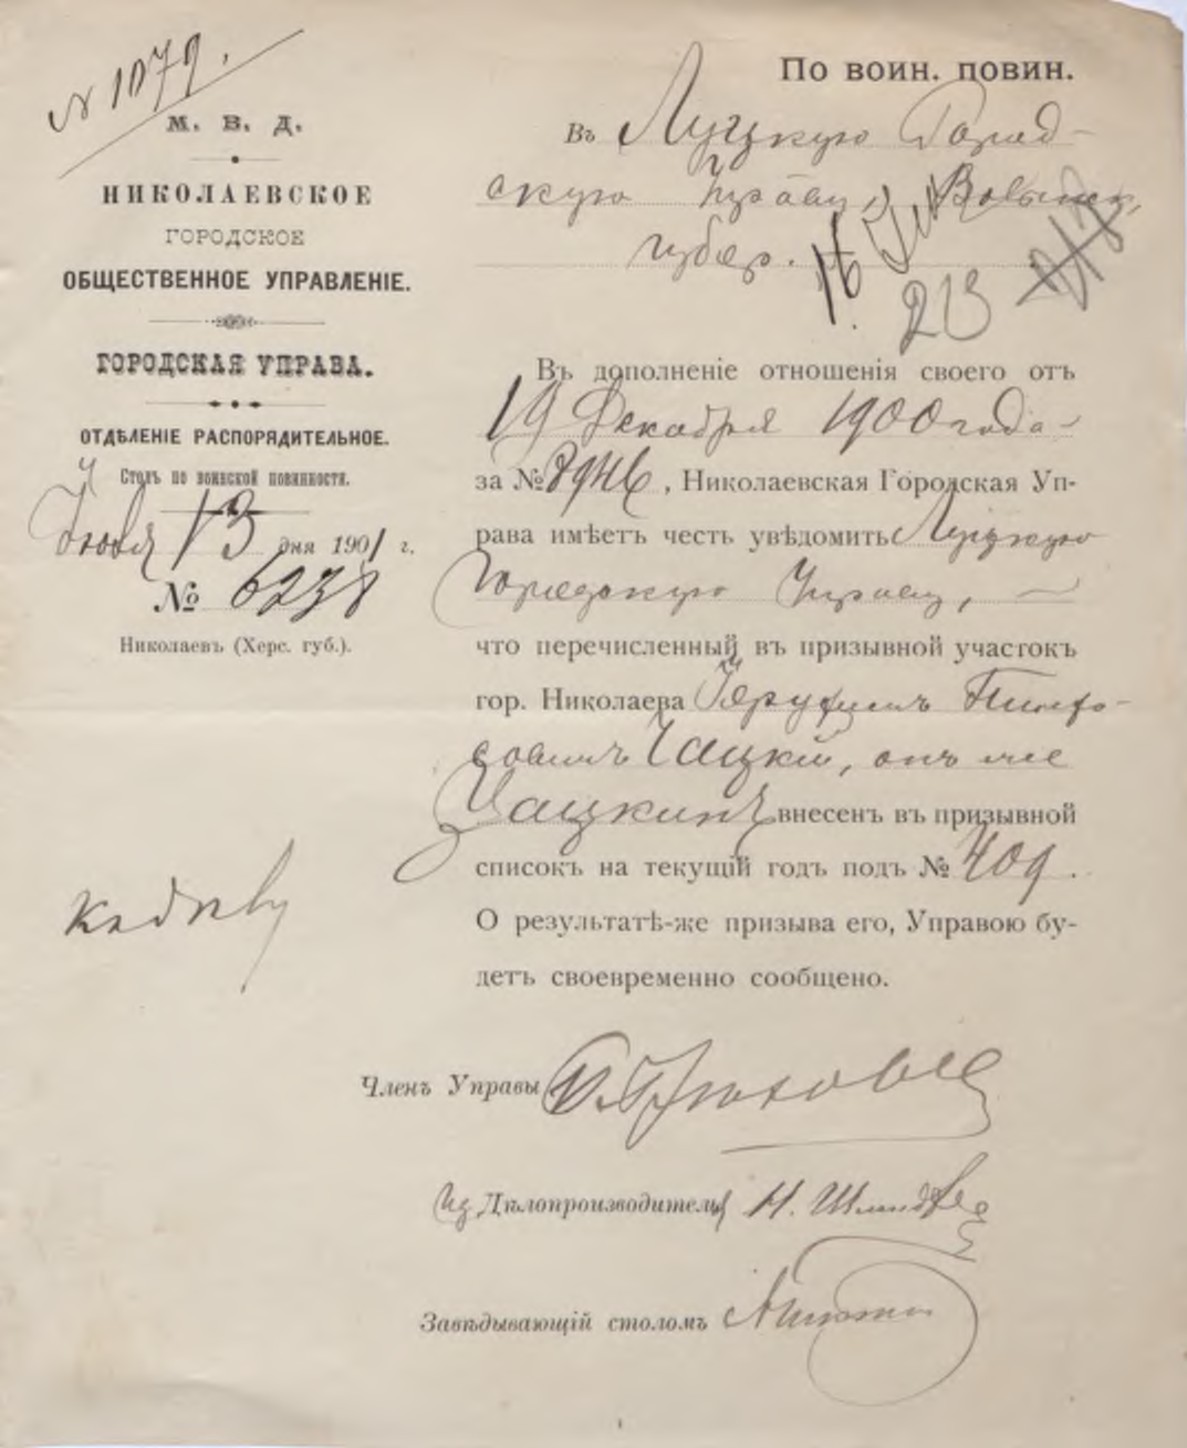 № 1079.
М. В. Д.
НИКОЛАЕВСКОЕ
ГОРОДСКОЕ
ОБЩЕСТВЕННОЕ УПРАВЛЕНІЕ.
ГОРОДСКАЯ УПРАВА.
ОТДѢЛЕНІЕ РАСПОРЯДИТЕЛЬНОЕ.
Столъ по воинской повинности.
Іюня 13 дня 1901 г.
№ 6238
Николаевъ (Херс. губ.).
По воин. повин.
Въ Луцкую Город-
скую Управу, Волынск,
губер.
16
213
Въ дополненіе отношенія своего отъ
19 Декабря 1900 года
за № 8946, Николаевская Городская Уп-
рава имѣетъ честь увѣдомить Луцкую
Городскую Управу,
что перечисленный въ призывной участокъ
гор. Николаева
Чацкій, онъ же
Чацкинъ внесенъ въ призывной
списокъ на текущій годъ подъ № 409.
О результатѣ-же призыва его, Управою бу-
детъ своевременно сообщено.
Членъ Управы
Дѣлопроизводитель Н.
Завѣдывающій столомъ